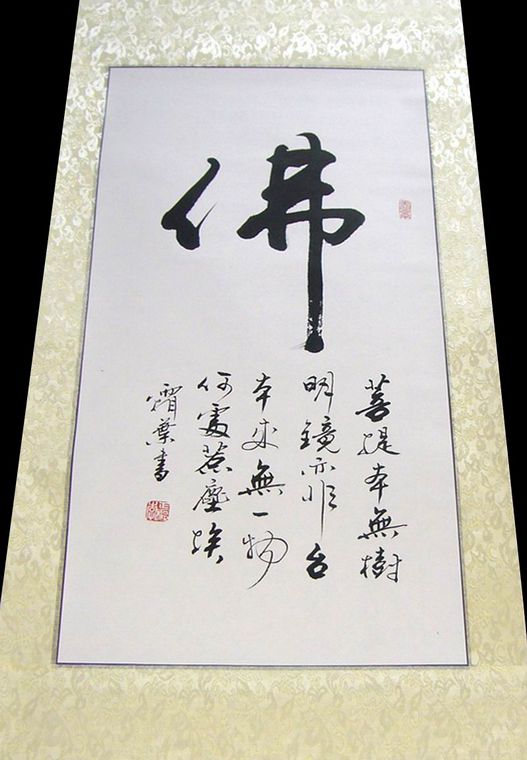 佛
菩提本無樹
明鏡亦非台
本來無一物
何處惹塵埃
霜葉書